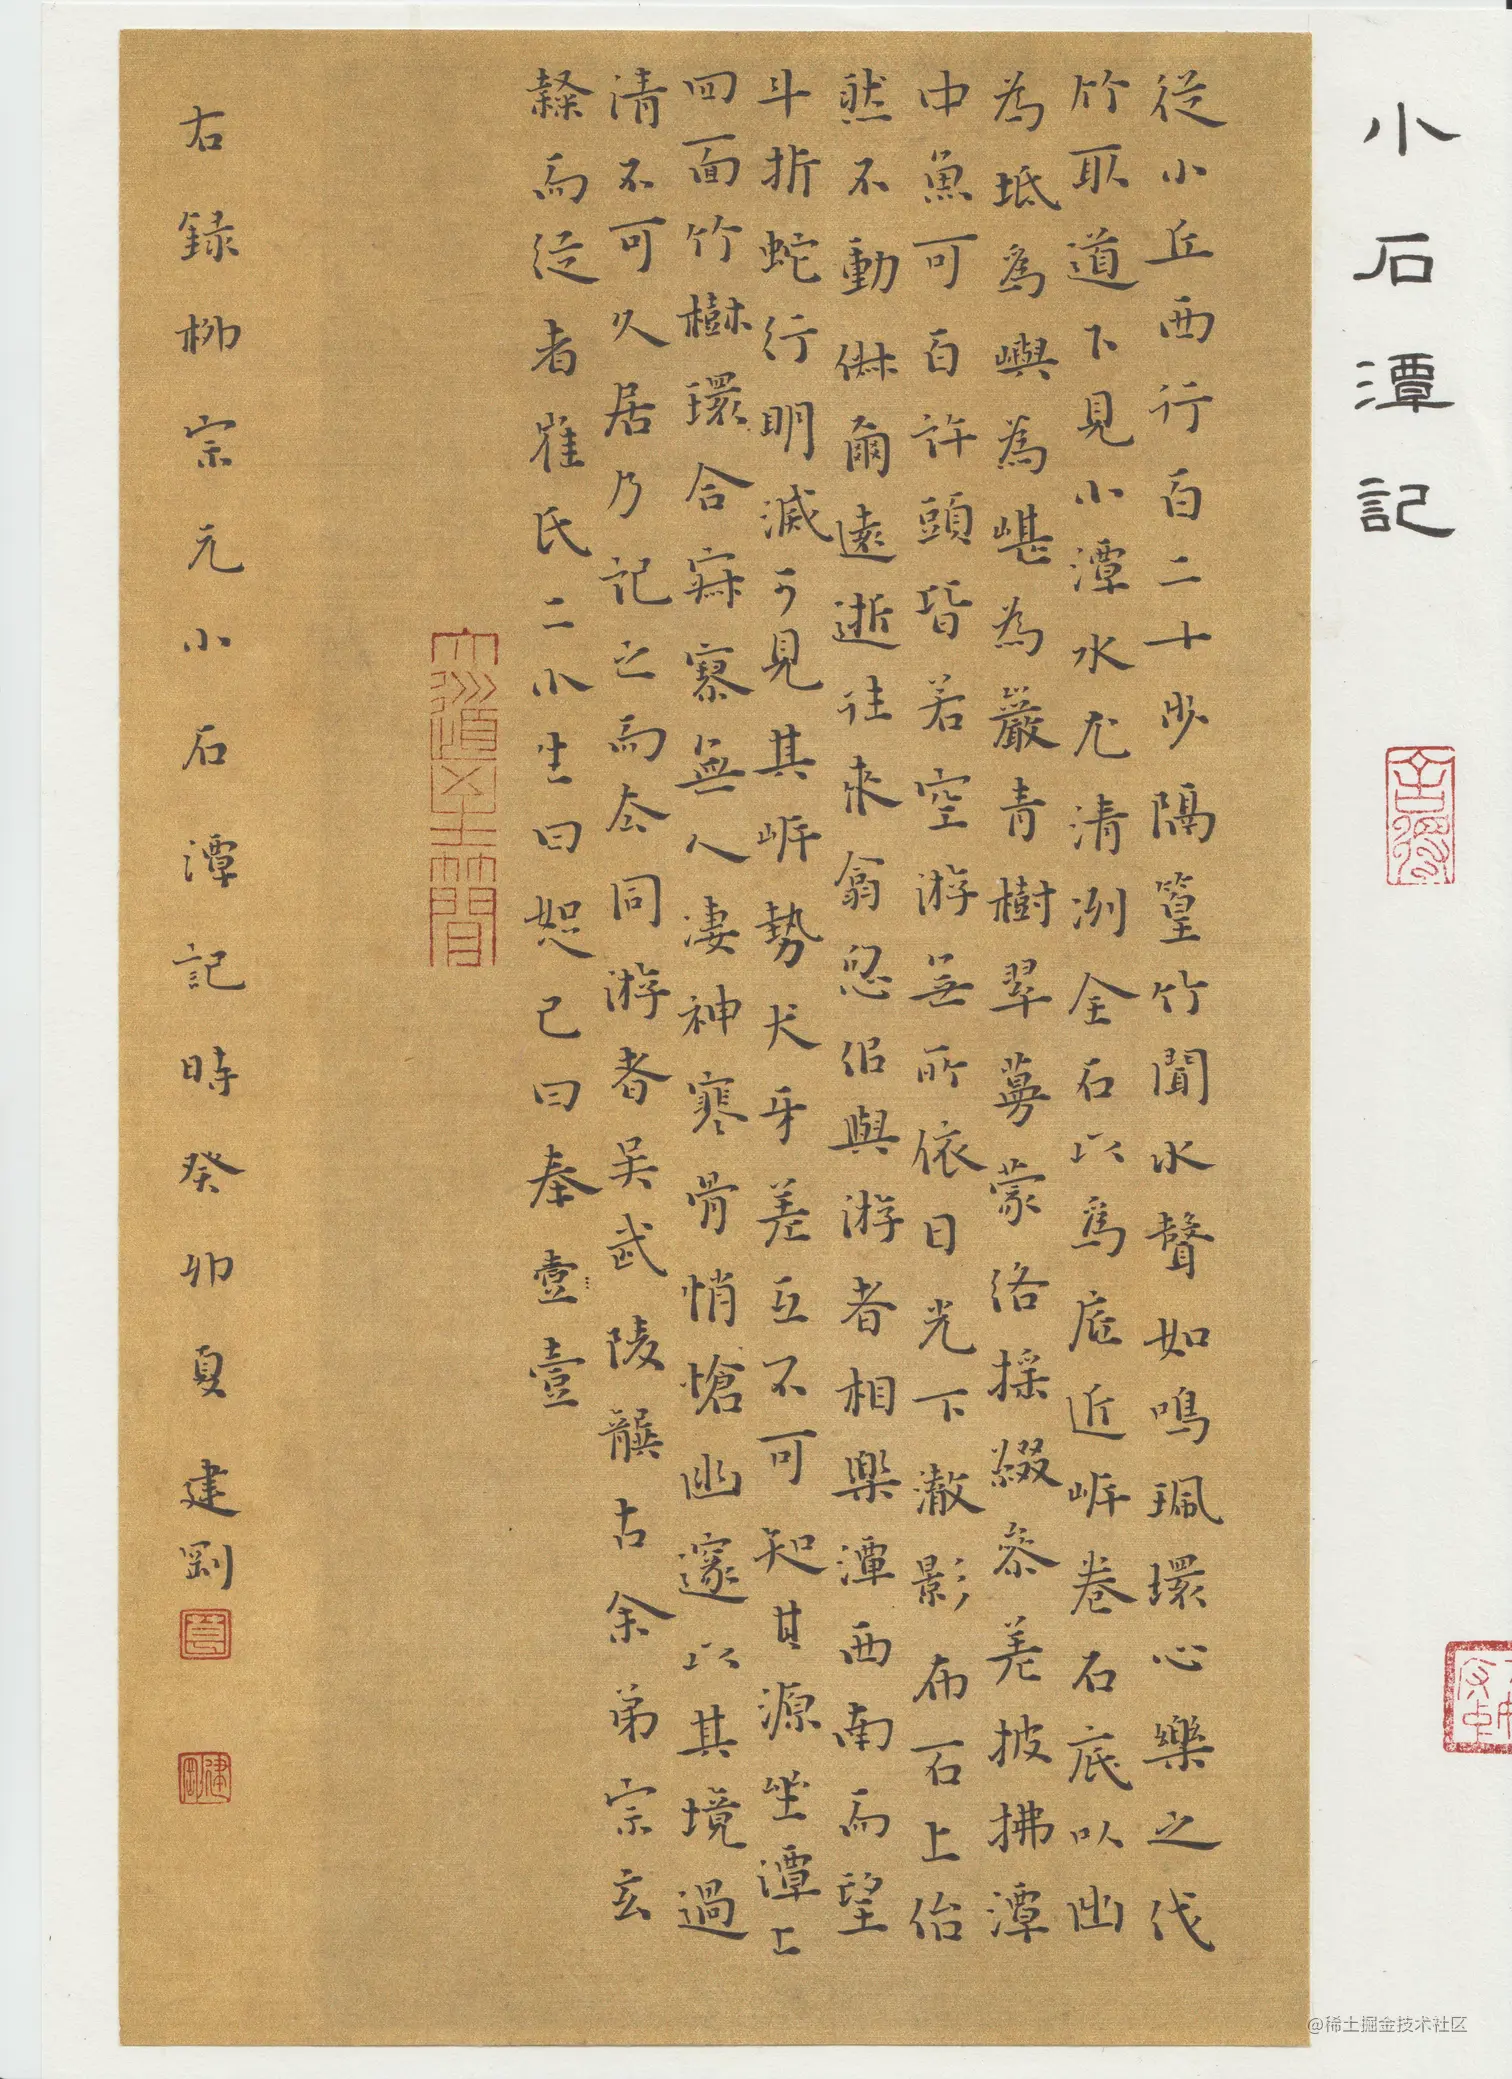 小石潭記
從小丘西行百二十步隔篁竹聞水聲如鳴珮環心樂之伐
竹取道下見小潭水尤清洌全石以為底近岸卷石底以出
為坻為嶼為嵁為巖青樹翠蔓蒙絡搖綴參差披拂潭
中魚可百許頭皆若空游無所依日光下澈影布石上佁
然不動俶爾遠逝往來翕忽佀與游者相樂潭西南而望
斗折蛇行明滅可見其岸勢犬牙差互不可知其源坐潭上
四面竹樹環合寂寥無人凄神寒骨悄愴幽邃以其境過
清不可久居乃記之而去同游者吳武陵龔古余弟宗玄
隸而從者崔氏二小生曰恕己曰奉壹壹
右録柳宗元小石潭記時癸卯夏建剛
建剛
@稀土掘金技术社区